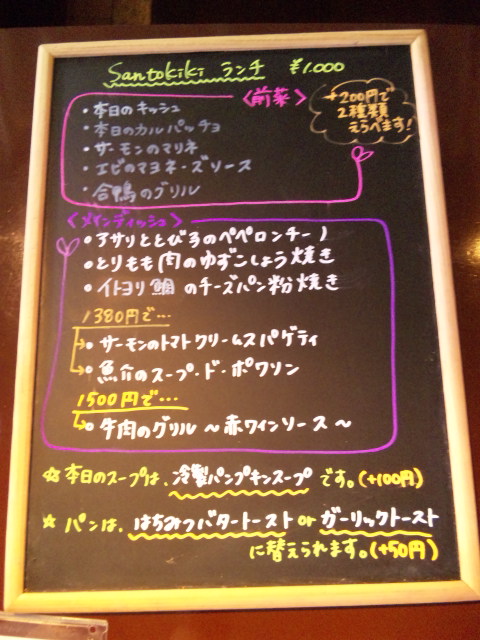 Santokiki ランチ ¥1.000
〈前菜〉
+200円で
2種類
えらべます!
・本日のキッシュ
・本日のカルパッチョ
・サーモンのマリネ
・エビのマヨネーズソース
・合鴨のグリル
〈メインディッシュ〉
・アサリととびこのペペロンチーノ
・とりもも肉のゆずこしょう焼き
・イトヨリ鯛のチーズパン粉焼き
1380円で…
・サーモンのトマトクリームスパゲティ
・魚介のスープ・ド・ポワソン
1500円で…
・牛肉のグリル ～赤ワインソース～
☆本日のスープは、冷製パンプキンスープです。(+100円)
☆パンは、はちみつバタートーストorガーリックトースト
に替えられます。(+50円)